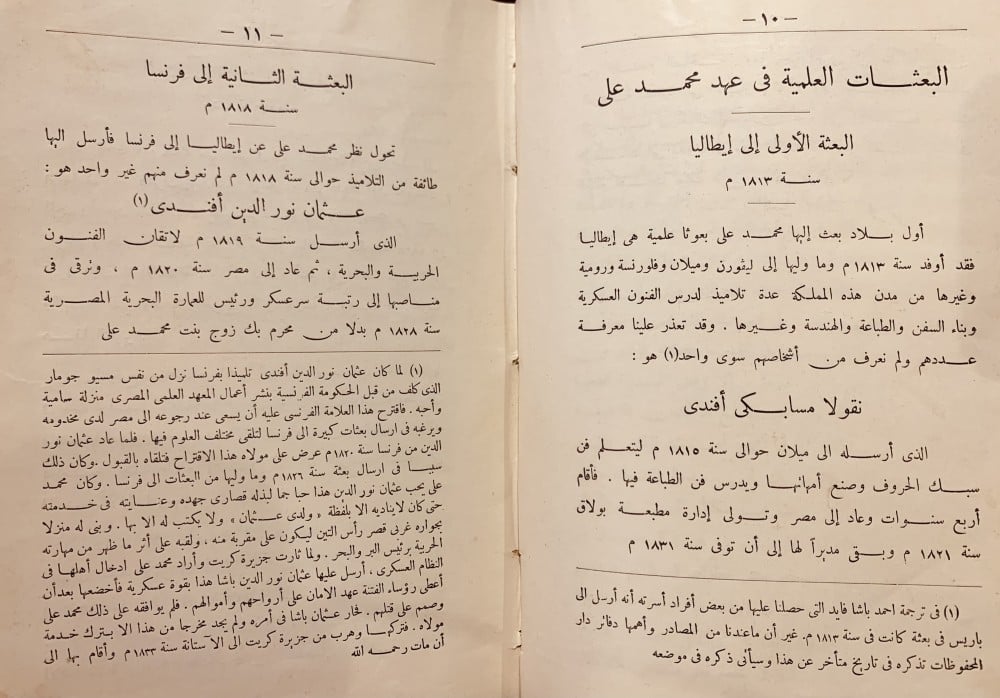 — ١٠ —
البعثات العلمية فى عهد محمد على
البعثة الأولى إلى إيطاليا
سنة ١٨١٣ م
أول بلاد بعث إليها محمد على بعوثا علمية هى إيطاليا
فقد أوفد سنة ١٨١٣ م وما وليها إلى ليفورن وميلان وفلورنسة ورومية
وغيرها من مدن هذه المملكة عدة تلاميذ لدرس الفنون العسكرية
وبناء السفن والطباعة والهندسة وغيرها . وقد تعذر علينا معرفة
عددهم ولم نعرف من أشخاصهم سوى واحد(١) هو :
نقولا مسابكى أفندى
الذى أرسله الى ميلان حوالى سنة ١٨١٥ م ليتعلم فن
سبك الحروف وصنع أمهاتها ويدرس فن الطباعة فيها . فأقام
أربع سنوات وعاد إلى مصر وتولى إدارة مطبعة بولاق
سنة ١٨٢١ م وبقى مديراً لها إلى أن توفى سنة ١٨٣١ م
(١) فى ترجمة احمد باشا فايد التى حصلنا عليها من بعض أفراد أسرته أنه أرسل الى
باريس فى بعثة كانت فى سنة ١٨١٣م. غير أن ماعندنا من المصادر وأهمها دفاتر دار
المحفوظات تذكره فى تاريخ متأخر عن هذا وسيأتى ذكره فى موضعه
— ١١ —
البعثة الثانية إلى فرنسا
سنة ١٨١٨ م
تحول نظر محمد على عن إيطاليا إلى فرنسا فأرسل اليها
طائفة من التلاميذ حوالى سنة ١٨١٨ م لم نعرف منهم غير واحد هو :
عثمان نور الدين أفندى(١)
الذى أرسل سنة ١٨١٩ م لاتقان الفنون
الحربية والبحرية ، ثم عاد إلى مصر سنة ١٨٢٠ م ، وترقى فى
مناصبها إلى رتبة سرعسكر ورئيس للعمارة البحرية المصرية
سنة ١٨٢٨ م بدلا من محرم بك زوج بنت محمد على
(١) لما كان عثمان نور الدين أفندى تلميذا بفرنسا نزل من نفس مسيو جومار
الذى كلف من قبل الحكومة الفرنسية بنشر أعمال المعهد العلمى المصرى منزلة سامية
وأحبه . فاقترح هذا العلامة الفرنسى عليه أن يسعى عند رجوعه الى مصر لدى مخدومه
ويرغبه فى ارسال بعثات كبيرة الى فرنسا لتلقى مختلف العلوم فيها . فلما عاد عثمان نور
الدين من فرنسا سنة ١٨٢٠م عرض على مولاه هذا الاقتراح فتلقاه بالقبول . وكان ذلك
سببا فى ارسال بعثة سنة ١٨٢٦م وما وليها من البعثات الى فرنسا . وكان محمد
على يحب عثمان نور الدين هذا حبا جما لبذله قصارى جهده وعنايته فى خدمته
حتى كان لايناديه الا بلفظة « ولدى عثمان » ولا يكتب له الا بها . وبنى له منزلا
بجواره غربى قصر رأس التين ليكون على مقربة منه ، ولقبه على أثر ما ظهر من مهارته
الحربية برئيس البر والبحر . ولما ثارت جزيرة كريت وأراد محمد على ادخال أهلها فى
النظام العسكرى ، أرسل عليها عثمان نور الدين باشا هذا بقوة عسكرية فأخضعها بعدأن
أعطى رؤساء الفتنة عهد الامان على أرواحهم وأموالهم . فلم يوافقه على ذلك محمد على
وصمم على قتلهم . فحار عثمان باشا فى أمره ولم يجد مخرجا من هذا الا بترك خدمة
مولاه . فتركها وهرب من جزيرة كريت الى الآستانة سنة ١٨٣٣م وأقام بها الى
أن مات رحمه الله